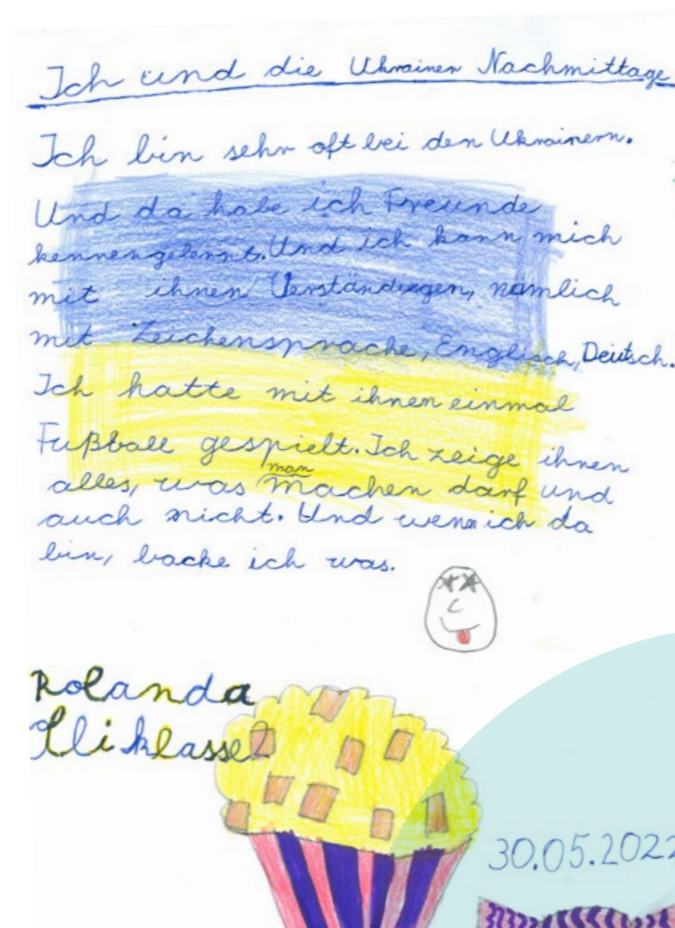 Ich und die Ukrainer Nachmittage
Ich bin sehr oft bei den Ukrainern.
Und da habe ich Freunde
kennengelernt. Und ich kann mich
mit ihnen Verständiegen, nämlich
mit Zeichensprache, Englisch, Deutsch.
Ich hatte mit ihnen einmal
Fußball gespielt. Ich zeige ihnen
alles, was man machen darf und
auch nicht. Und wenn ich da
bin, backe ich was.
Rolanda
klasse2
30.05.2022